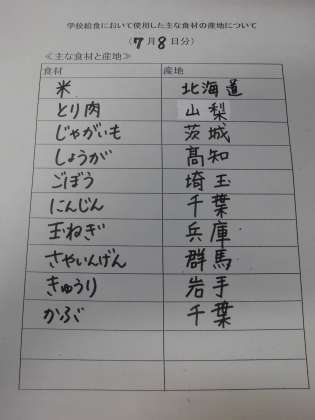 学校給食において使用した主な食材の産地について
(7月8日分)
≪主な食材と産地≫
食材 産地
米 北海道
とり肉 山梨
じゃがいも 茨城
しょうが 高知
ごぼう 埼玉
にんじん 千葉
玉ねぎ 兵庫
さやいんげん 群馬
きゅうり 岩手
かぶ 千葉